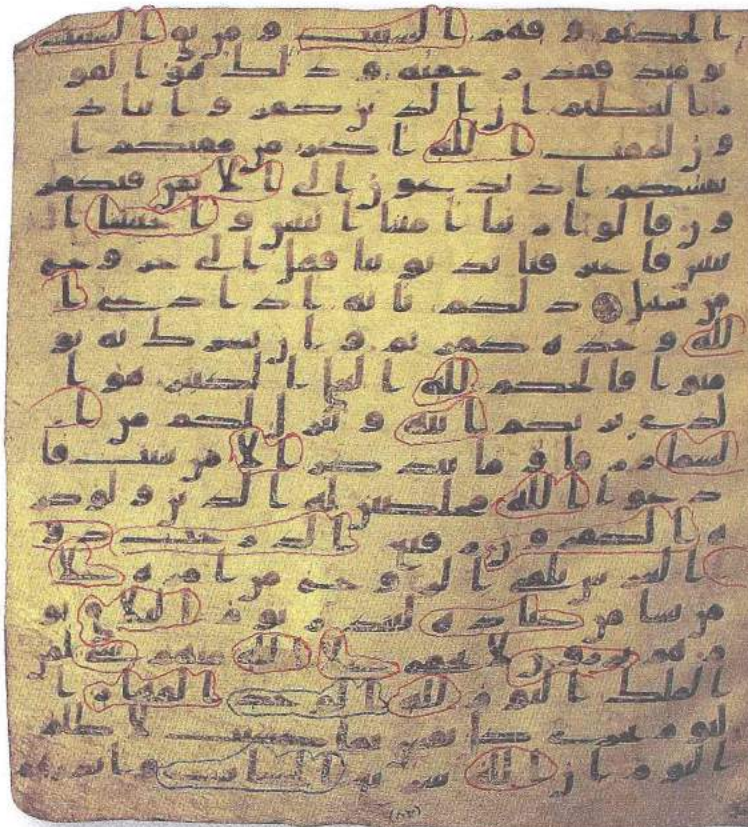 الحكيم و قهم السيت و من تق السيت
يومئذ فقد رحمته و ذلك هو الفو
ز العظيم ان الذين كفروا يناد
ون لمقت الله اكبر من مقتكم ا
نفسكم اذ تدعون الى الايمن فتكفر
ون قالوا ربنا امتنا اثنتين و احييتنا ا
ثنتين فاعترفنا بذنوبنا فهل الى خروج
من سبيل ذلكم بانه اذا دعي ا
لله وحده كفرتم و ان يشرك به تو
منوا فالحكم لله العلي الكبير هو ا
لذي يريكم ايته و ينزل لكم من ا
لسما رزقا و ما يتذكر الا من ينيب فا
دعوا الله مخلصين له الدين و لو كر
ه الكفرون رفيع الدرجت ذو
العرش يلقي الروح من امره على
من يشا من عباده لينذر يوم التلاق يو
م هم برزون لا يخفى على الله منهم شي لمن
الملك اليوم لله الوحد القهار ا
ليوم تجزى كل نفس بما كسبت لا ظلم
اليوم ان الله سريع الحساب و انذرهم